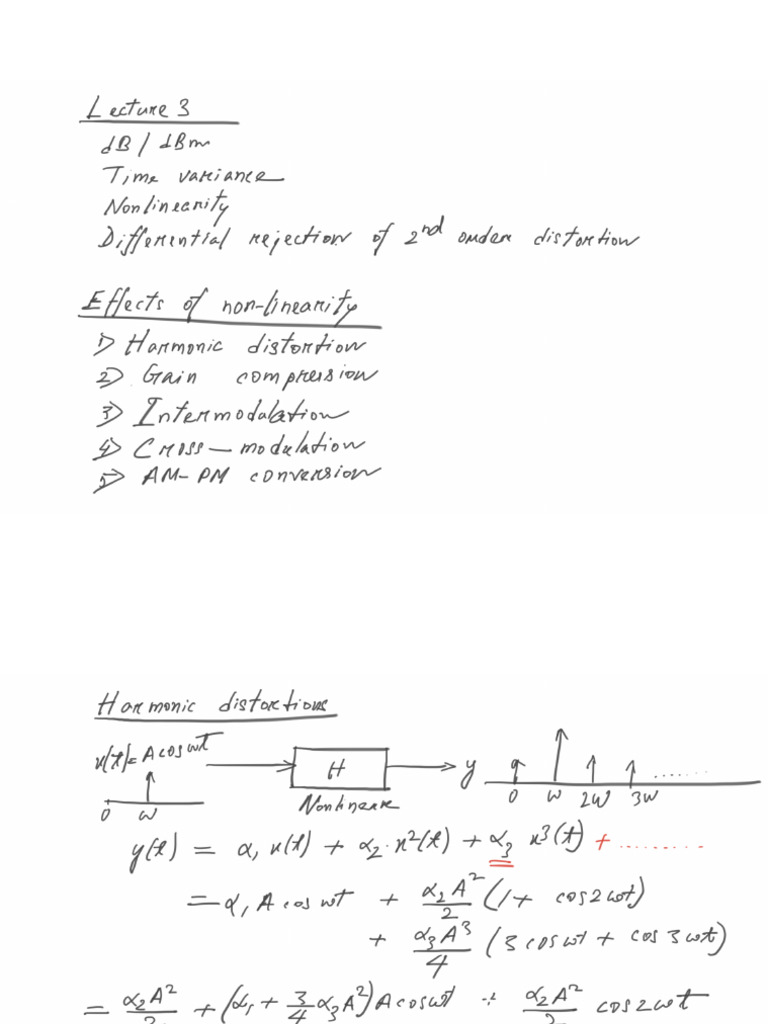 Lecture 3
dB / dBm
Time variance
Nonlinearity
Differential rejection of 2nd order distortion
Effects of non-linearity
1) Harmonic distortion
2) Gain compression
3) Intermodulation
4) Cross-modulation
5) AM-PM conversion
Harmonic distortions
x(t)= A cos ωt
H
y
0 ω
Nonlinear
0 ω 2ω 3ω ........
y(t) = α₁ x(t) + α₂·x²(t) + α₃ x³(t) + .........
= α₁ A cos ωt + α₂A²/2 (1 + cos2ωt)
+ α₃A³/4 (3 cosωt + cos 3ωt)
= α₂A²/2 + (α₁ + 3/4 α₃A²) A cosωt + α₂A²/2 cos2ωt